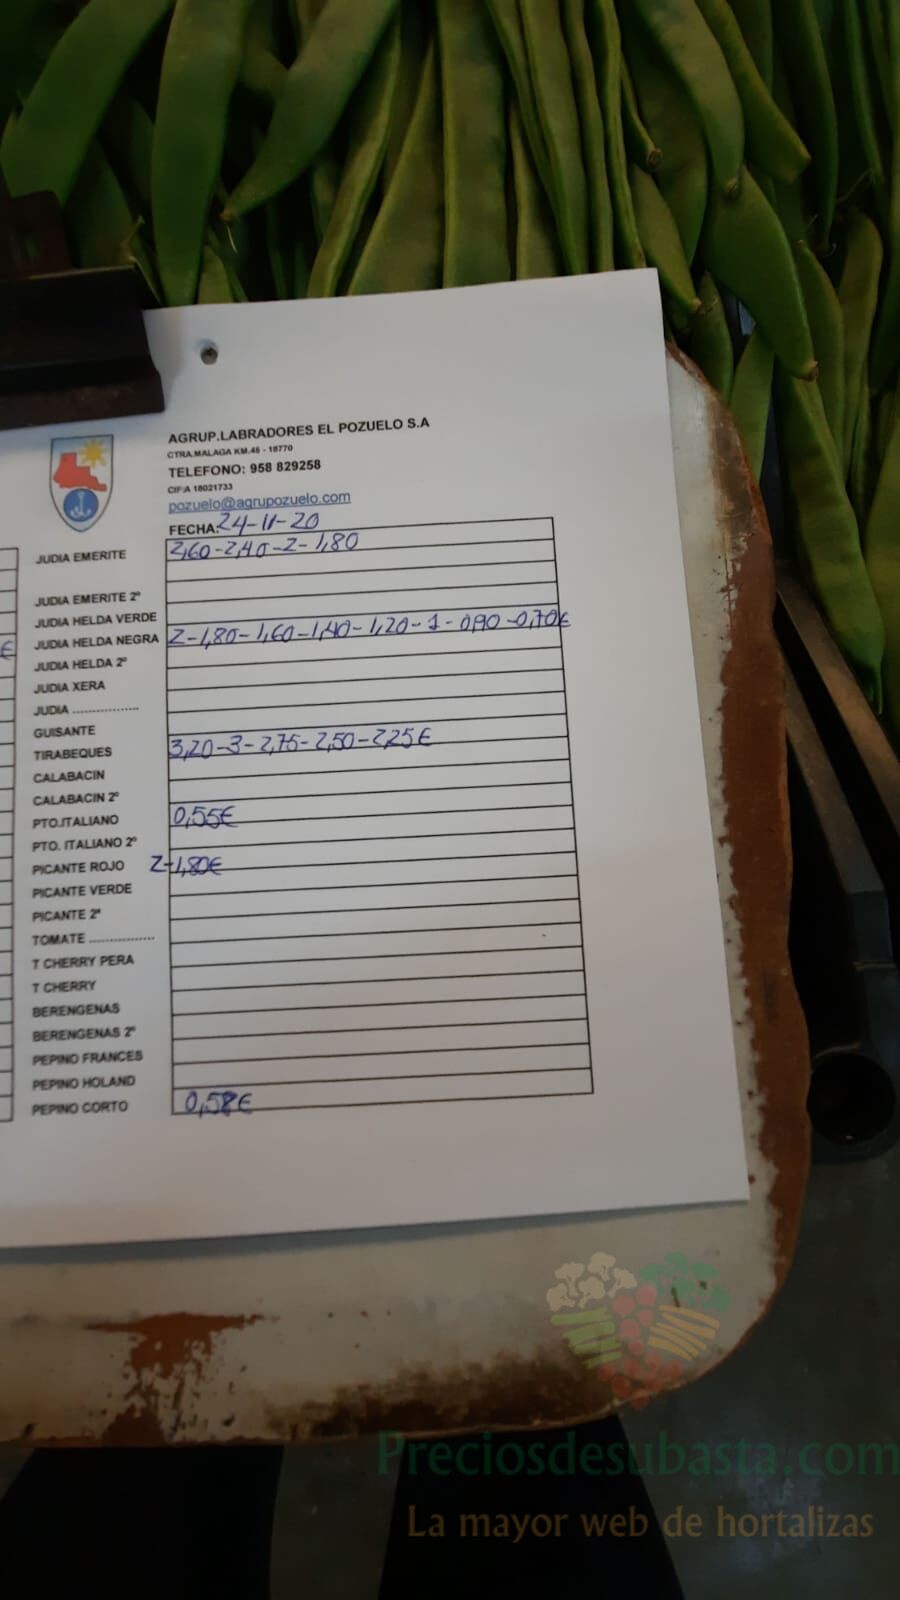 AGRUP.LABRADORES EL POZUELO S.A
CTRA.MALAGA KM.45 - 18770
TELEFONO: 958 829258
CIF:A 18021733
pozuelo@agrupozuelo.com
FECHA: 24-11-20
JUDIA EMERITE 2,60-2,40-2-1,80
JUDIA EMERITE 2ª
JUDIA HELDA VERDE
€ JUDIA HELDA NEGRA 2-1,80-1,60-1,40-1,20-1-0,90-0,70€
JUDIA HELDA 2ª
JUDIA XERA
JUDIA ..................
GUISANTE
TIRABEQUES 3,20-3-2,75-2,50-2,25€
CALABACIN
CALABACIN 2ª
PTO.ITALIANO 0,55€
PTO. ITALIANO 2ª
PICANTE ROJO 2-1,80€
PICANTE VERDE
PICANTE 2ª
TOMATE ..................
T CHERRY PERA
T CHERRY
BERENGENAS
BERENGENAS 2ª
PEPINO FRANCES
PEPINO HOLAND
PEPINO CORTO 0,58€
Preciosdesubasta.com
La mayor web de hortalizas